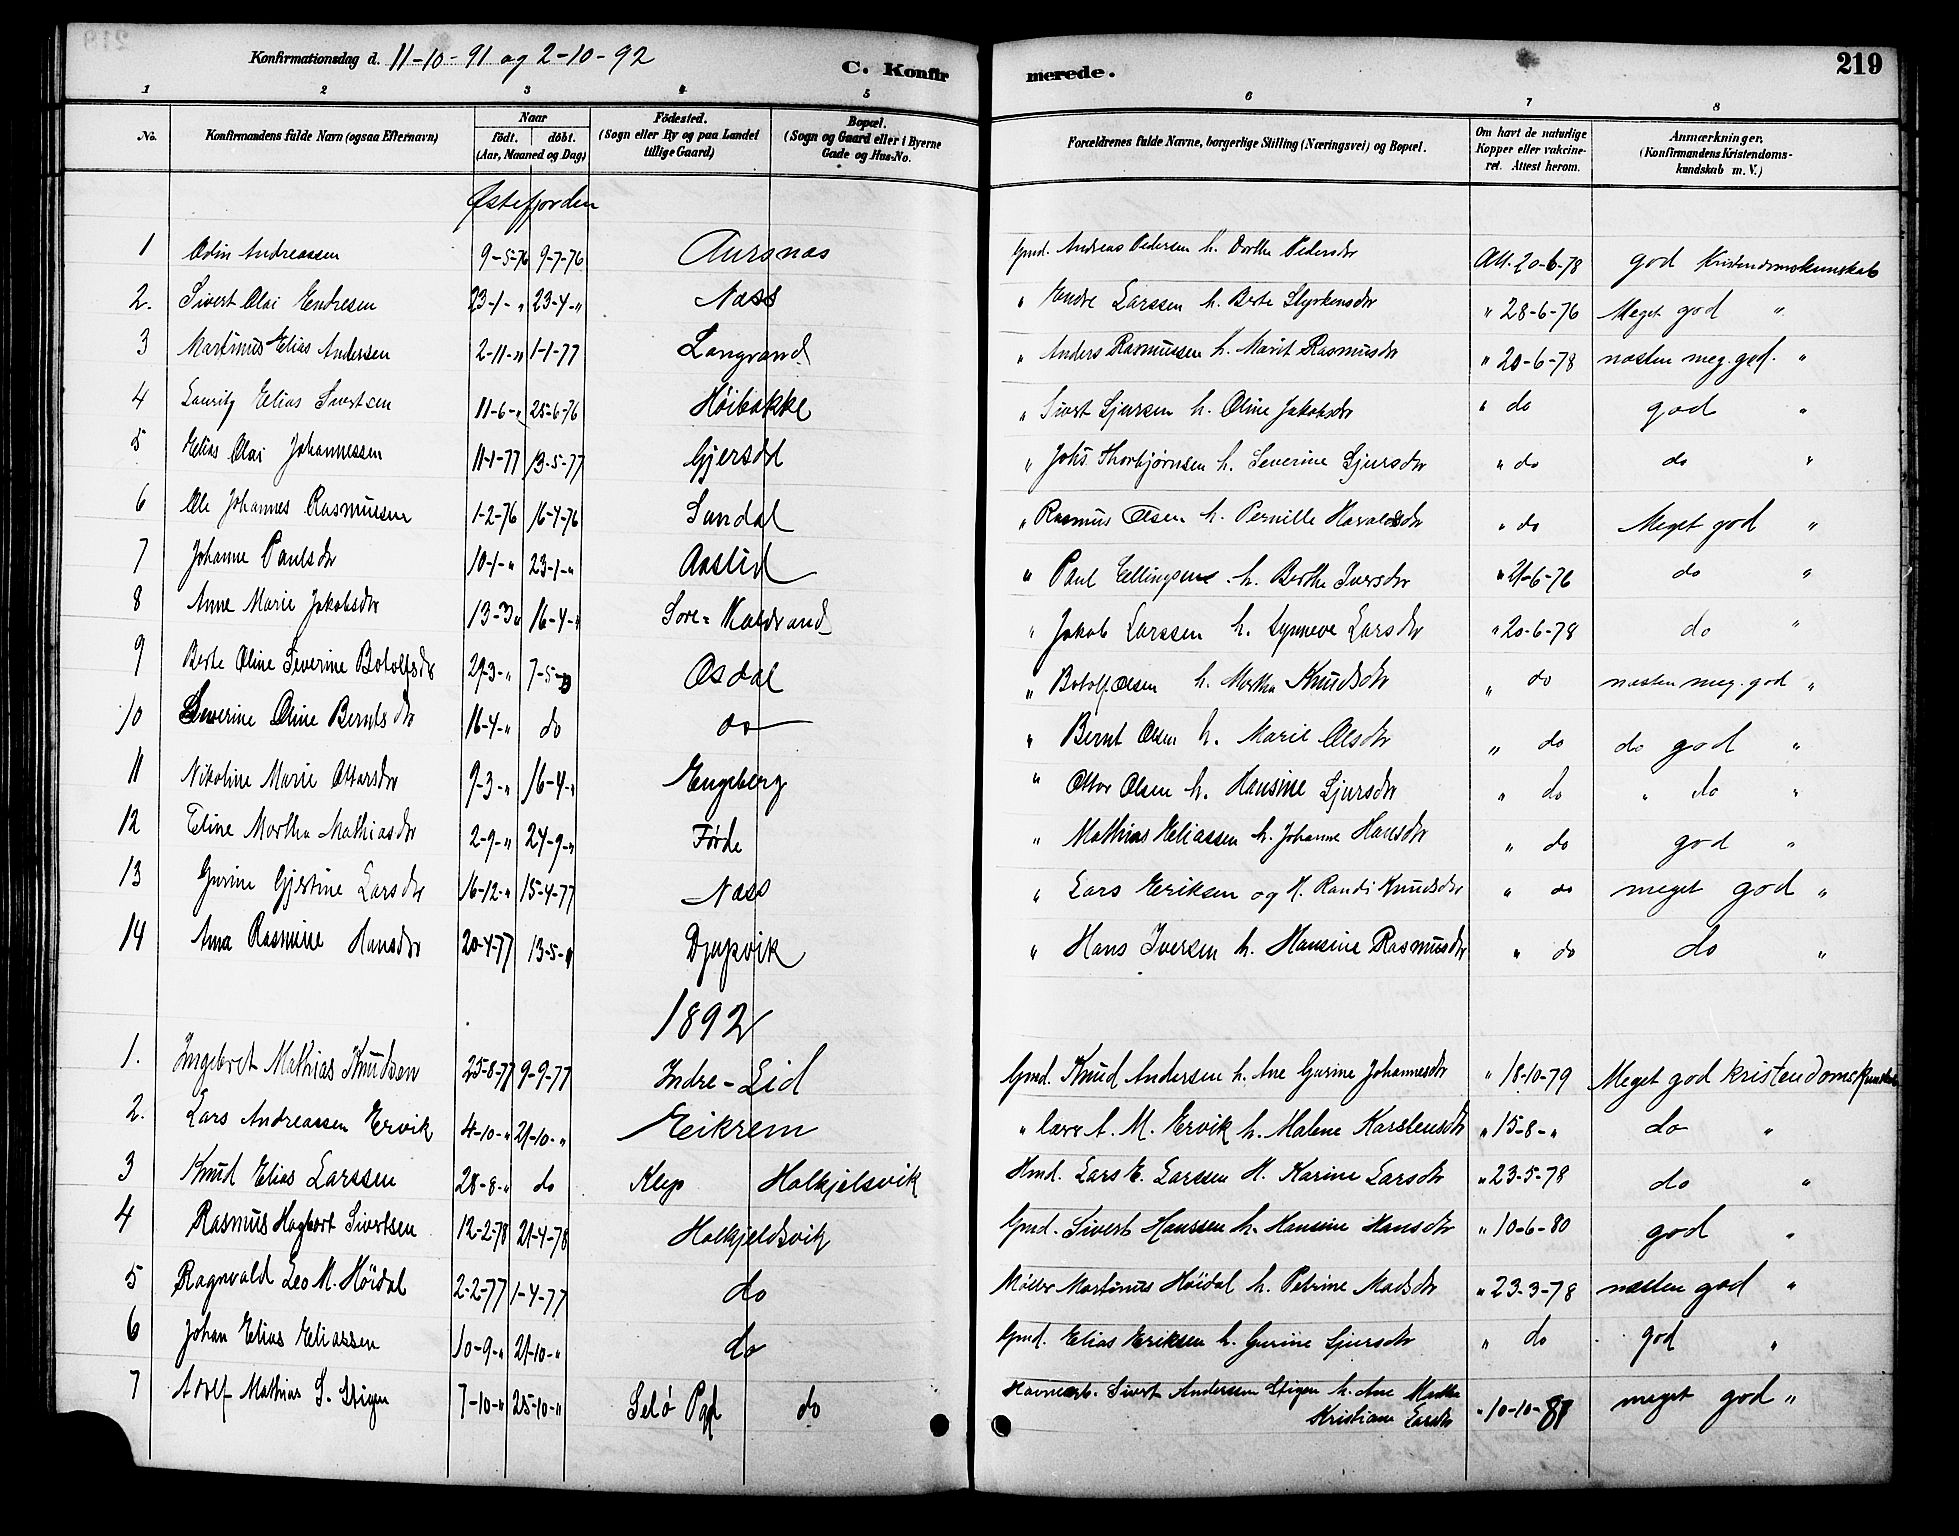 Konfirmationsdag d. 11-10-91 og 2-10-92
C. Konfirmerede. 219
1 2 3 4 5 6 7 8
No. Konfirmandens fulde Navn (ogsaa Efternavn) Naar født. døbt. (Aar, Maaned og Dag) Fødested. (Sogn eller By og paa Landet tillige Gaard) Bopæl. (Sogn og Gaard eller i Byerne Gade og Hus-No. Forældrenes fulde Navne, borgerlige Stilling (Næringsvei) og Bopæl. Om havt de naturlige Kopper eller vakcineret. Attest herom. Anmærkninger. (Konfirmandens Kristendomskundskab m. V.)
Østefjorden
1 Odin Andreassen 9-5-76 9-7-76 Aursnes Gmd. Andreas Pedersen h. Dorthe Pedersdr Att. 20-6-78 god Kristendomskunskab
2. Sivert Olai Endresen 23-1-" 23-4-" Næss " Endre Larssen h. Berte Styrkensdr " 28-6-76 Meget god "
3 Martinus Elias Andersen 2-11-" 1-1-77 Langvand " Anders Rasmussen h. Marit Rasmusdr " 20-6-78 næsten meg. god. "
4 Lauritz Elias Sivertsen 11-6-" 25-6-76 Høibakke " Sivert Sjursen h. Oline Jakobsdr " do god "
5 Elias Olai Johannessen 11-1-77 13-5-77 Gjersdal " Johs. Thorbjørnsen h. Severine Sjursdr " do do "
6 Ole Johannes Rasmussen 1-2-76 16-4-76 Sundal " Rasmus Olsen h. Pernille Haraldsdr " do Meget god "
7 Johanne Paulsdr 10-1-" 23-1-" Aaslid " Paul Ellingsen h. Berthe Iversdr " 21-6-76 do "
8 Anne Marie Jakobsdr 13-3" 16-4-" Sore-Kaldvand " Jakob Larssen h. Synneve Larsdr " 20-6-78 do "
9 Berte Oline Severine Botolfsdr 29-3-" 7-5-" Osdal " Botolf Olsen h. Martha Knudsdr " do næsten meg. god "
10 Severine Oline Berntsdr 16-4-" do do " Bernt Olsen h. Marie Olsdr " do do god "
11 Nikoline Marie Ottarsdr 9-3-" 16-4-" Engeberg " Ottar Olsen h. Hansine Sjursdr " do " do "
12 Eline Martha Mathiasdr 2-9-" 24-9-" Førde " Mathias Eliassen h. Johanne Hansdr " do god "
13 Gurine Gjertine Larsdr 16-12-" 15-4-77 Næss " Lars Eriksen og H. Randi Knudsdr " do meget god "
14 Ana Rasmine Hansdr 20-4-77 13-5-" Djupvik " Hans Iversen h. Hansine Rasmusdr " do do "
1892
1. Ingebret Mathias Knudsen 25-8-77 9-9-77 Indre-Eid Gmd. Knud Andersen h. Ane Gurine Johannesdr " 18-10-79 Meget god kristendomskundskab
2. Lars Andreassen Ervik 4-10-" 21-10-" Eikrem " Lærer A. M. Ervik h. Malene Karstensdr " 15-8-" do "
3 Knud Elias Larssen 28-8-" do Klep Halkjelsvik Hmd. Lars E. Larssen H. Karine Larsdr " 23-5-78 do "
4 Rasmus Hagbart Sivertsen 12-2-78 21-4-78 Halkjeldsvik Gmd. Sivert Hanssen h. Hansine Hansdr " 10-6-80 god "
5 Ragnvald Leo M. Höidal 2-2-77 1-4-77 do Møller Martinus Höidal h. Petrine Madsdr " 23-3-78 næsten god "
6 Johan Elias Eliassen 10-9-" 21-10-" do Gmd. Elias Eriksen h. Gurine Sjursdr " do god "
7 Adolf Mathias S. Stigen 7-10-" 25-10-" Selø Pgd do Havnearb. Sivert Andersen Stigen h. Ane Martha Kristiane Larsdr " 10-10-81 meget god "